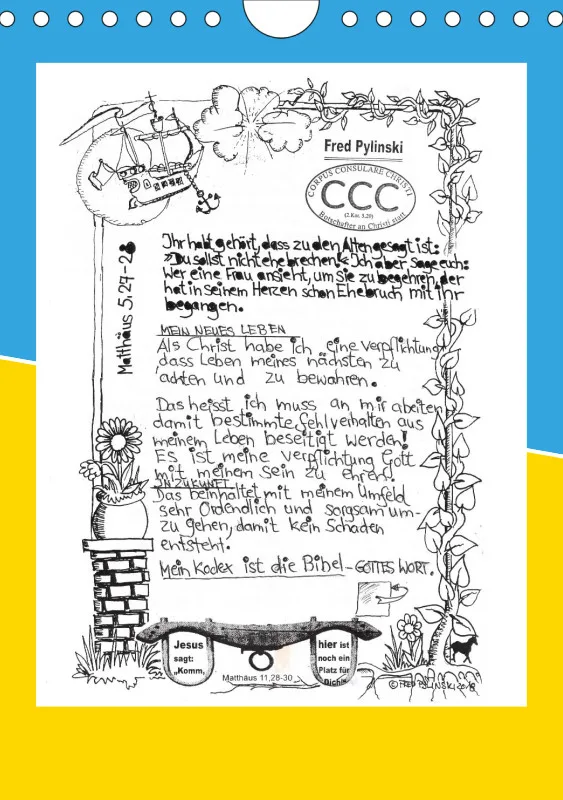 Fred Pylinski
CORPUS CONSULARE CHRISTI
CCC
(2.Kor. 5,20)
Botschafter an Christi statt
Matthäus 5,27-28
Ihr habt gehört, dass zu den Alten gesagt ist:
»Du sollst nicht ehebrechen!« Ich aber sage euch:
Wer eine Frau ansieht, um sie zu begehren, der
hat in seinem Herzen schon Ehebruch mit ihr
begangen.
MEIN NEUES LEBEN
Als Christ habe ich eine Verpflichtung
dass Leben meines nächsten zu
achten und zu bewahren.
Das heisst ich muss an mir abeiten
damit bestimmte fehlverhalten aus
meinem Leben beseitigt werden!
ES ist meine Verpflichtung Gott
mit meinem Sein zu ehren!
IN ZUKUNFT
Das beinhaltet mit meinem Umfeld
sehr Ordendlich und sorgsam um-
zu gehen, damit kein Schaden
entsteht.
Mein Kodex ist die Bibel - GOTTES WORT.
Jesus
sagt:
„Komm,
hier ist
noch ein
Platz für
Dich!"
Matthäus 11,28-30
© FRED PYLINSKI 2018